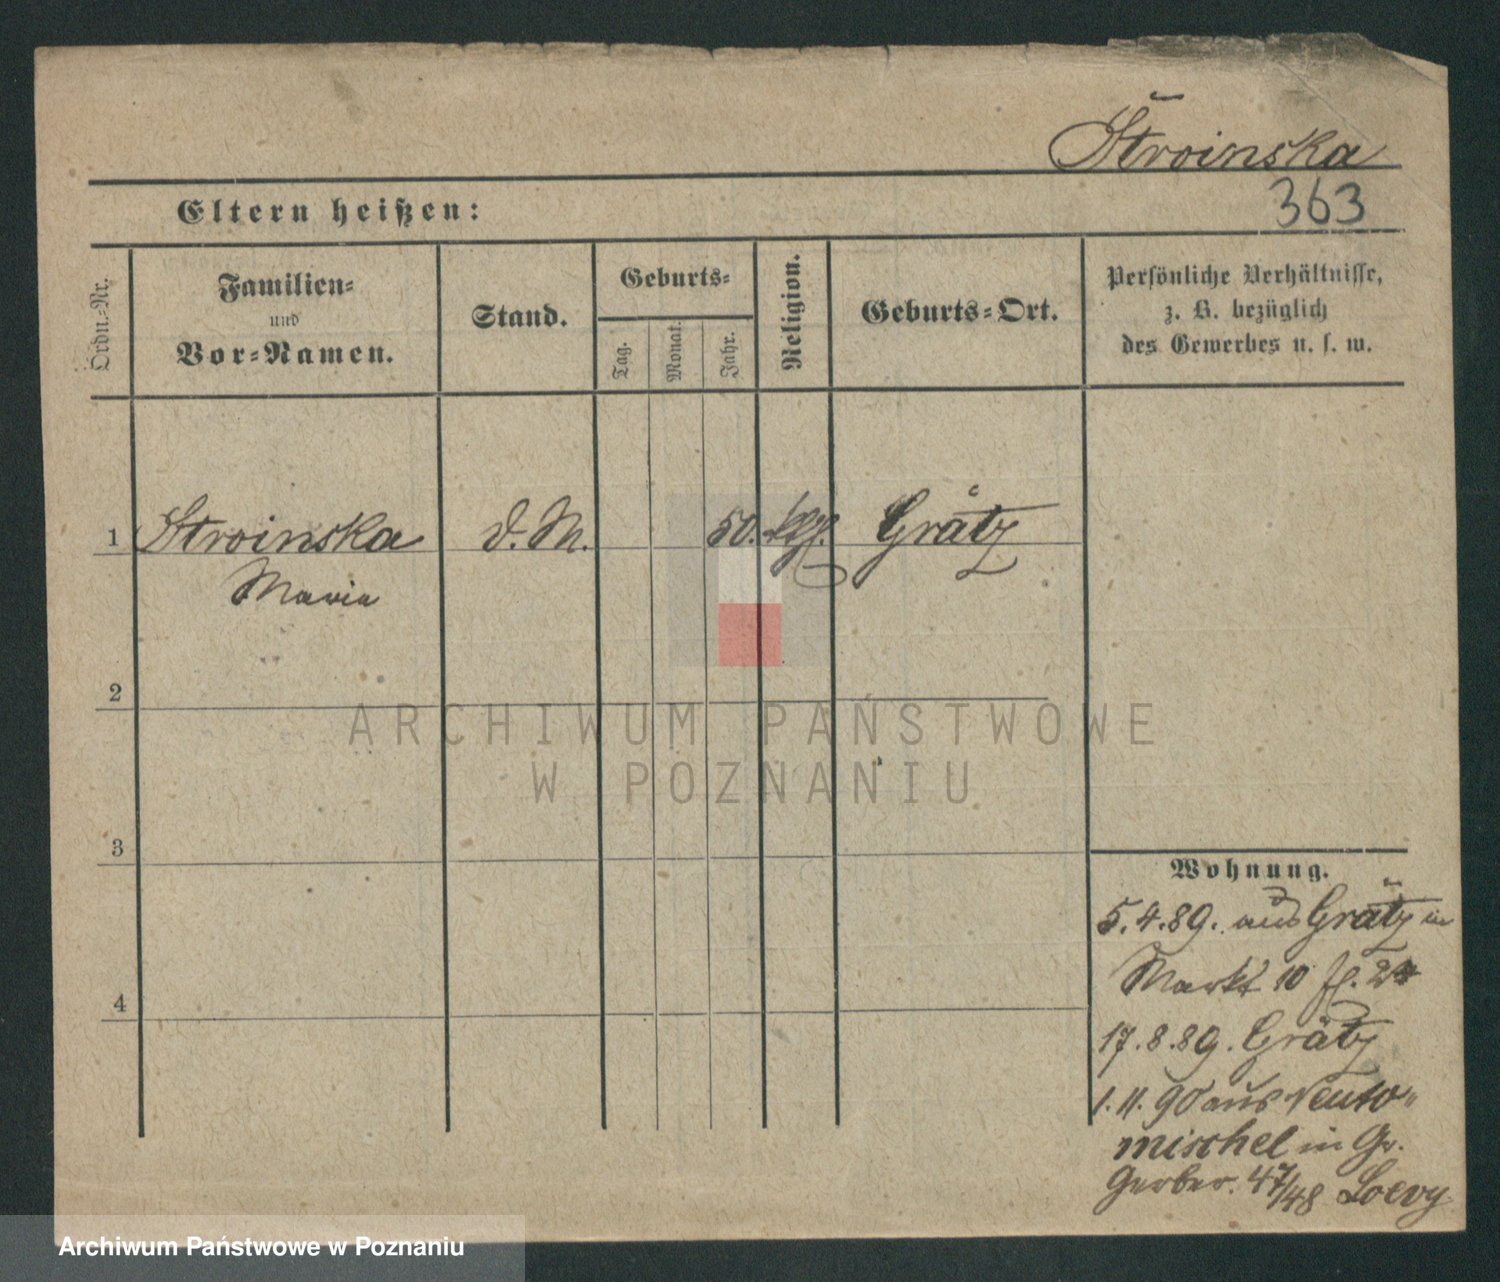 Stroinska
363
Eltern heißen:
Ordn.-Nr.
Familien-
und
Vor-Namen.
Stand.
Geburts-
Tag.
Monat.
Jahr.
Religion.
Geburts-Ort.
Persönliche Verhältnisse,
z. B. bezüglich
des Gewerbes u. s. w.
1
Stroinska
Maria
d. M.
50.
Grätz
2
3
4
Wohnung.
5.4.89. aus Grätz in
Markt 10
17.8.89. Grätz
1.11.90 aus Neuto-
mischel in Gr.
Gerber. 47/48 Loevy
ARCHIWUM PAŃSTWOWE
W POZNANIU
Archiwum Państwowe w Poznaniu